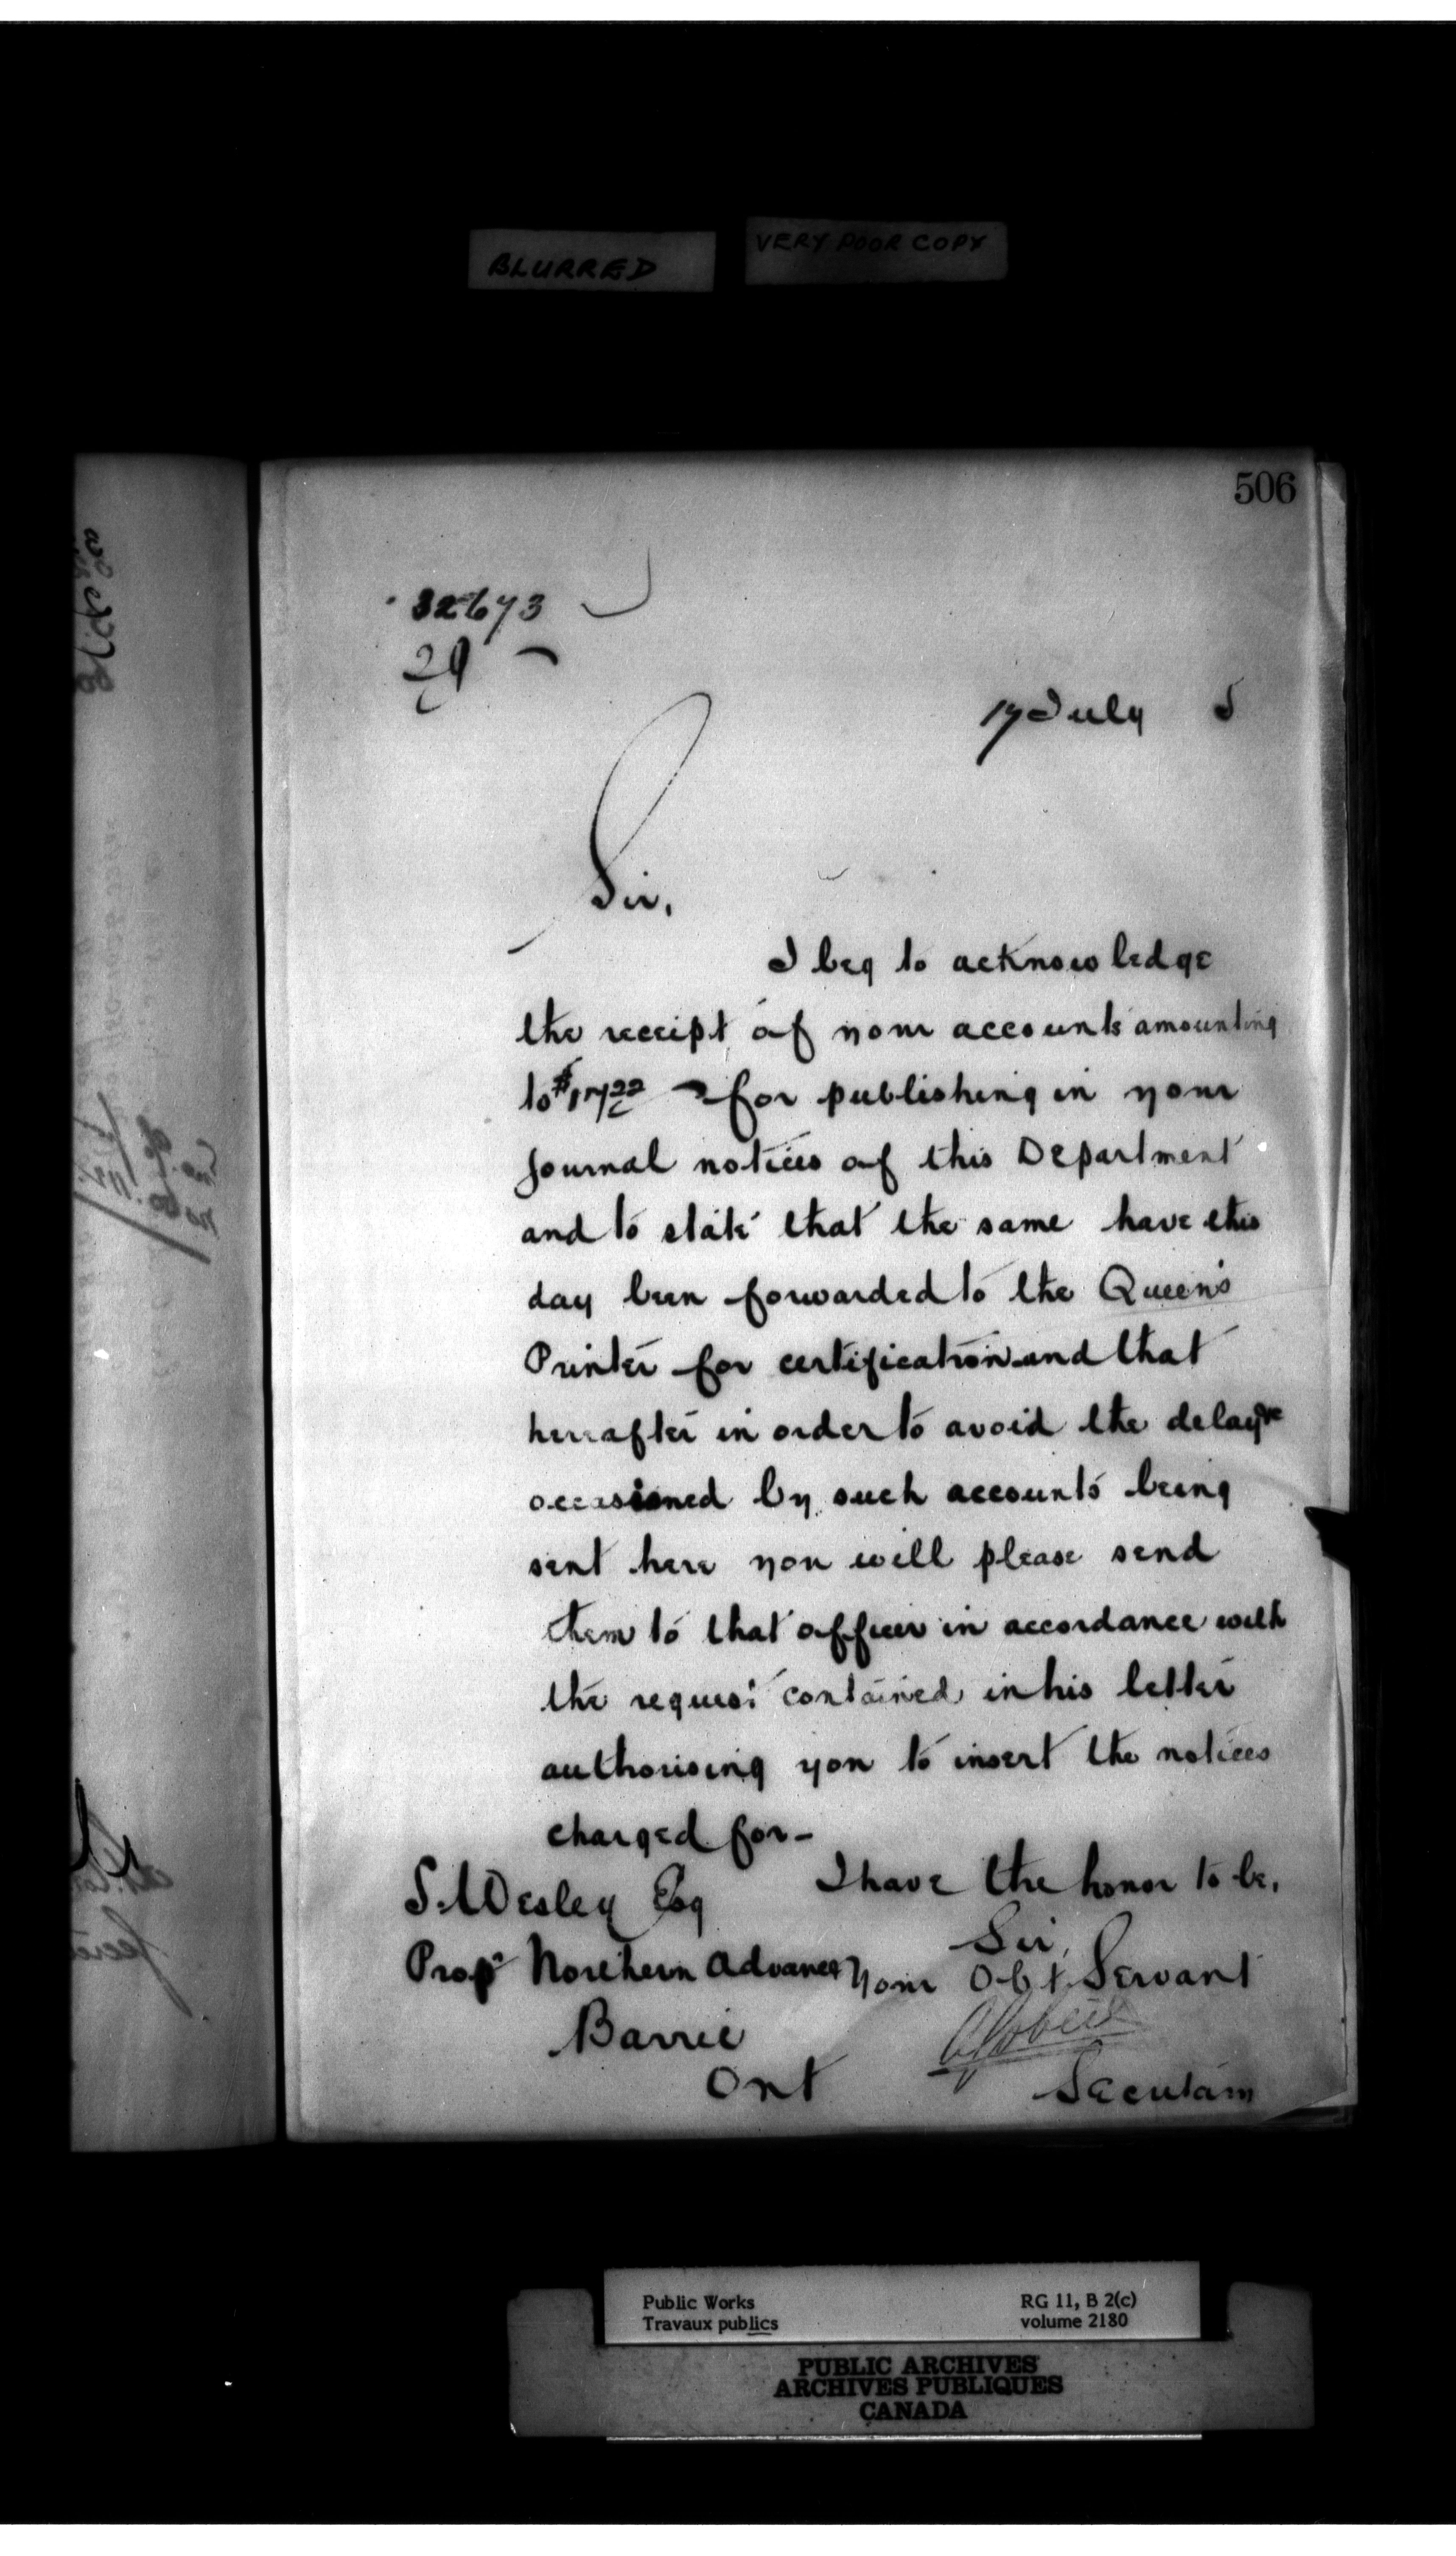 BLURRED
VERY POOR COPY
506
32673
29
17 July 5
Sir,
I beg to acknowledge
the receipt of your accounts amounting
to $17 22 for publishing in your
Journal notices of this Department
and to state that the same have this
day been forwarded to the Queen's
Printer for certification and that
hereafter in order to avoid the delay
occasioned by such accounts being
sent here you will please send
them to that officer in accordance with
the request contained in his letter
authorising you to insert the notices
charged for-
I have the honor to be,
Sir,
Your Obt Servant
Secretary
S. Wesley Esq
Propr Northern Advance
Barrie
Ont
Public Works
Travaux publics
RG 11, B 2(c)
volume 2180
PUBLIC ARCHIVES
ARCHIVES PUBLIQUES
CANADA